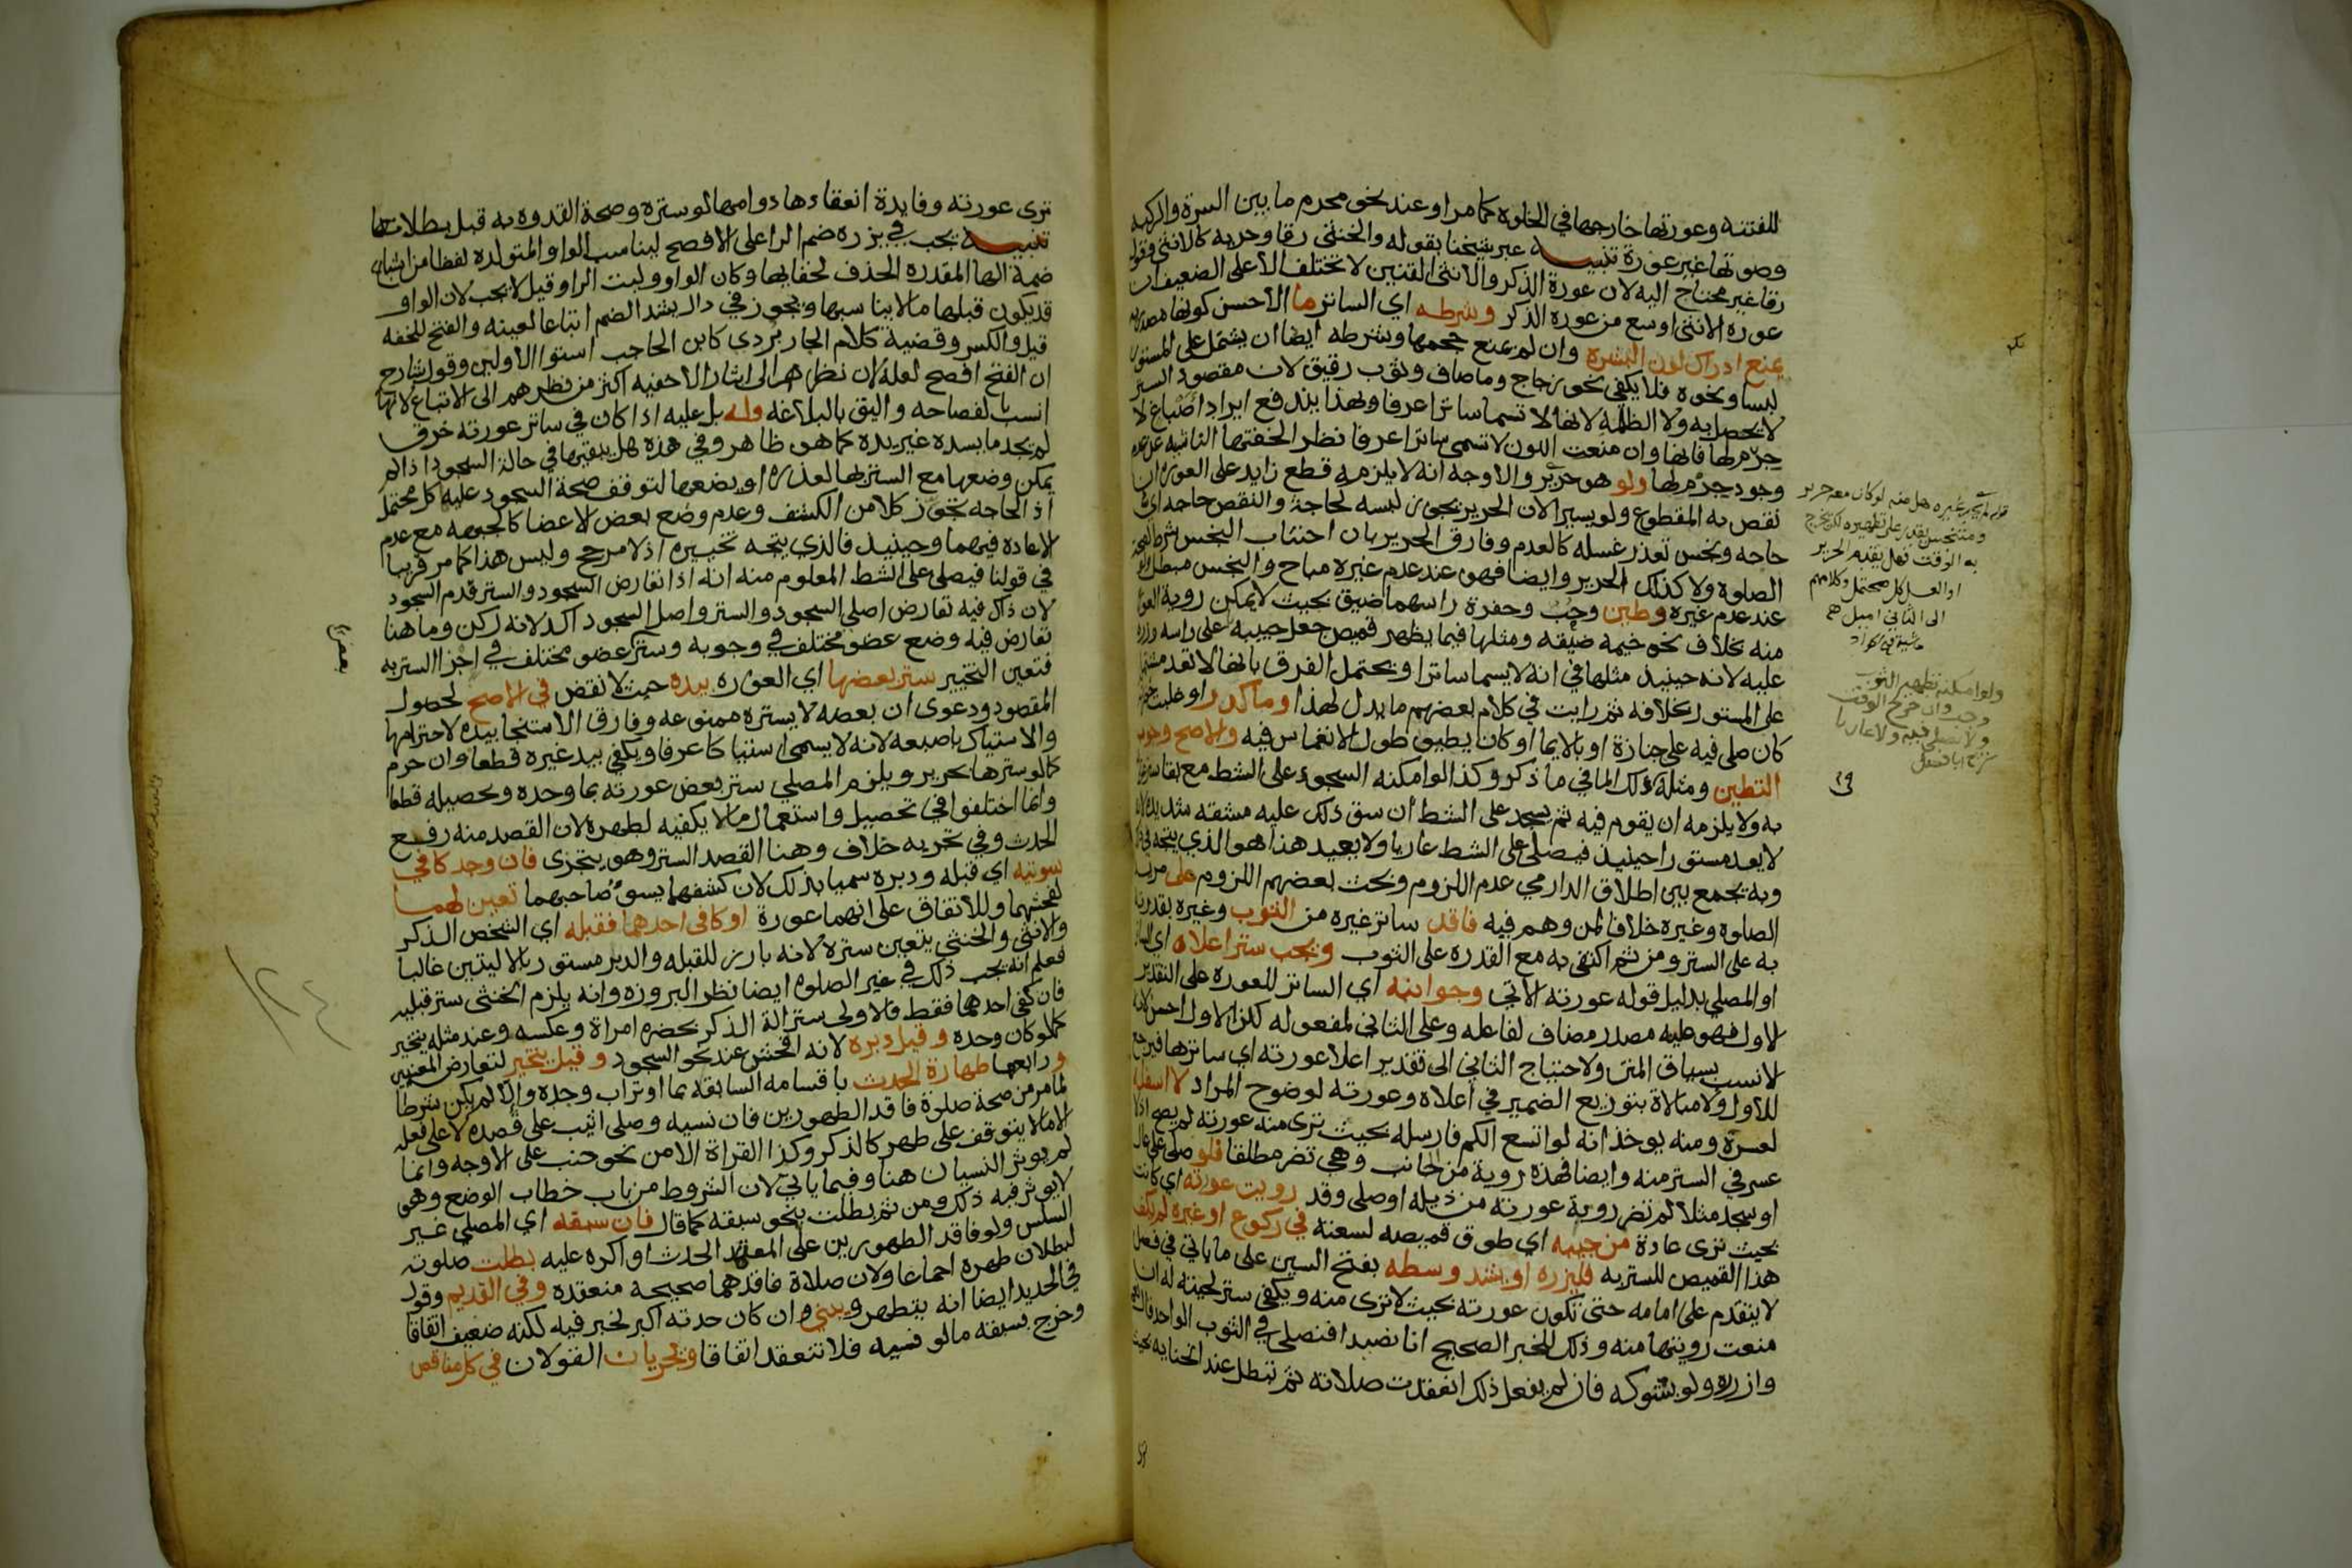 للفتنه وعورتها خارجها في الخلوه كما مر او عند نحو محرم ما بين السرة والركبه
وصوتها غير عورة تنبيه عبر شيخنا بقوله والخنثى رقا وحريه كالانثى وقوله
رقا غير محتاج اليه لان عورة الذكر والانثى القنين لا تختلف الا على الضعيف ان
عورة الانثى اوسع من عورة الذكر وشرطه اي الساتر ما الاحسن كونها مصدريه
يمنع ادراك لون البشره وان لم يمنع حجمها وشرطه ايضا ان يشتمل على المستور
لبسا ونحوه فلا يكفي نحو زجاج وما صاف وثوب رقيق لان مقصود الستر
لا يحصل به ولا الظلمة لانها لا تسما ساترا عرفا وبهذا يندفع ايراد اصباغ لا
جرم لها فانها وان منعت اللون لا تسمى ساترا عرفا نظرا لخفتها الناشيه عن عدم
وجود جرم لها ولو هو حرير والاوجه انه لا يلزمه قطع زايد على العورة ان
نقص به المقطوع ولو يسيرا لان الحرير يجوز لبسه لحاجة والنقص حاجه اي
حاجه ونجس تعذر غسله كالعدم وفارق الحرير بان اجتناب النجس شرط لصحة
الصلوة ولا كذلك الحرير وايضا فهو عند عدم غيره مباح والنجس مبطل ولو
عند عدم غيره وطين وجب وحفرة راسهما ضيق بحيث لا يمكن روية العورة
منه بخلاف نحو خيمه ضيقه ومثلها فيما يظهر قميص جعل جيبه على راسه وزره
عليه لانه حينيذ مثلها في انه لا يسما ساترا ويحتمل الفرق بانها لا تعد مشتملة
على المستور بخلافه ثم رايت في كلام بعضهم ما يدل لهذا وما كدر او غلبت خضرته
كان صلى فيه على جنازة او بالايما او كان يطيق طول الانغماس فيه والاصح وجوب
التطين ومثله ذلك الما في ما ذكر وكذا لو امكنه السجود على الشط مع بقا ستر عورته
به ولا يلزمه ان يقوم فيه ثم يسجد على الشط ان شق ذلك عليه مشقه شديده لانه
لا يعد مستورا حينيذ فيصلي على الشط عاريا ولا يعيد هذا هو الذي يتجه في ذلك
وبه يجمع بين اطلاق الدارمي عدم اللزوم وبحث بعضهم اللزوم على مريد
الصلوة وغيره خلافا لمن وهم فيه فاقد ساتر غيره من الثوب وغيره بقدرته
به على الستر ومن ثم اكتفي به مع القدرة على الثوب ويجب ستر اعلاه اي الساتر
او المصلي بدليل قوله عورته الاتي وجوانبه اي الساتر للعورة على التقدير
الاول فهو عليه مصدر مضاف لفاعله وعلى الثاني لمفعوله لكن الاول احسن لانه
الانسب بسياق المتن ولاحتياج الثاني الى تقدير اعلا عورته اي ساترها فيرجع
للاول ولا مبالاة بتوزيع الضمير في اعلاه وعورته لوضوح المراد لا اسفله
لعسره ومنه يوخذ انه لو اتسع الكم فارسله بحيث ترى منه عورته لم يصح اذ لا
عسر في الستر منه وايضا فهذه روية من الجانب وهي تضر مطلقا فلو صلى على عال
او سجد مثلا لم تضر روية عورته من ذيله او صلى وقد رويت عورته اي كانت
بحيث ترى عادة من جيبه اي طوق قميصه لسعته في ركوع او غيره لم يكف
هذا القميص للستر به فليزره او يشد وسطه بفتح السين على ما ياتي في فصل
لا يتقدم على امامه حتى تكون عورته بحيث لا ترى منه ويكفي ستر لحيته له ان
منعت رويتها منه وذلك للخبر الصحيح انا نصيد افنصلي في الثوب الواحد قال نعم
وازرره ولو بشوكه فان لم يفعل ذلك انعقدت صلاته ثم تبطل عند انحنايه بحيث
قوله غيره هل منه لو كان معه حرير
ومتنجس يقدر على تطهيره لكن يخرج
به الوقت فهل يقدم الحرير
او الغسل كل محتمل وكلامهم
الى الثاني اميل
ولو امكنه تطهير الثوب
وجب وان خرج الوقت
ولا يصلي فيه ولا عاريا
ترى عورته وفايدة انعقادها دوامها لو ستره وصحة القدوه به قبل بطلانها
تنبيه يجب في يزره ضم الرا على الافصح ليناسب الواو المتولده لفظا من اشباع
ضمة الها المقدره الحذف لخفايها وكان الواو وليت الرا وقيل لا يجب لان الواو
قد يكون قبلها ما لا يناسبها ويجوز في دال يشد الضم اتباعا لعينه والفتح للخفه
قيل والكسر وقضية كلام الجاربردي كابن الحاجب استوا الاولين وقول شارح
ان الفتح افصح لعله لان نظرهم الى ايثار الاخفيه اكثر من نظرهم الى الاتباع لانها
انسب بالفصاحه واليق بالبلاغه وله بل عليه اذا كان في ساتر عورته خرق
لم يجد ما يسده غير يده كما هو ظاهر وفي هذه هل يبقيها في حالة السجود اذا لم
يمكن وضعها مع الستر بها لعذره او يضعها لتوقف صحة السجود عليه كل محتمل
اذ الحاجه تجوز كلا من الكشف وعدم وضع بعض الاعضا كالجبهه مع عدم
الاعاده فيهما وحينيذ فالذي يتجه تخييره اذ لا مرجح وليس هذا كما مر قريبا
في قولنا فيصلي على الشط المعلوم منه انه اذا تعارض السجود والستر قدم السجود
لان ذاك فيه تعارض اصلي السجود والستر واصل السجود اكد لانه ركن وما هنا
تعارض فيه وضع عضو مختلف في وجوبه وستر عضو مختلف في اجزا الستر به
فتعين التخيير ستر بعضها اي العورة بيده حيث لا نقض في الاصح لحصول
المقصود ودعوى ان بعضه لا يستره ممنوعه وفارق الاستنجا بيده لاحترامها
والاستياك باصبعه لانه لا يسمى استياكا عرفا ويكفي بيد غيره قطعا وان حرم
كما لو سترها بحرير ويلزم المصلي ستر بعض عورته بما وجده وتحصيله قطعا
وانما اختلفوا في تحصيل واستعمال ما لا يكفيه لطهره لان القصد منه رفع
الحدث وفي تجزيه خلاف وهنا القصد الستر وهو يتجزى فان وجد كافي
سوتيه اي قبله ودبره سميا بذلك لان كشفهما يسوء صاحبهما تعين لهما
لفحشهما وللاتفاق على انهما عورة او كافي احدهما فقبله اي الشخص الذكر
والانثى والخنثى يتعين ستره لانه بارز للقبله والدبر مستور بالاليتين غالبا
فعلم انه يجب ذلك في غير الصلوة ايضا نظرا لبروزه وانه يلزم الخنثى ستر قبليه
فان كفى احدهما فقط فالاولى ستر الة الذكر بحضرة امراة وعكسه وعند مثله يتخير
كما لو كان وحده وقيل دبره لانه افحش عند نحو السجود وقيل يتخير لتعارض المعنيين
ورابعها طهارة الحدث باقسامه السابقه بما او تراب وجده والا لم يكن شرطا
لما مر من صحة صلوة فاقد الطهورين فان نسيه وصلى اثيب على قصده لا على فعله
الا ما لا يتوقف على طهر كالذكر وكذا القراة الا من نحو جنب على الاوجه وانما
لم يوثر النسيان هنا وفيما ياتي لان الشروط من باب خطاب الوضع وهو
لا يوثر فيه ذلك ومن ثم بطلت بنحو سبقه كما قال فان سبقه اي المصلي غير
السلس ولو فاقد الطهورين على المعتمد الحدث او اكره عليه بطلت صلوته
لبطلان طهره اجماعا ولان صلاة فاقدهما صحيحة منعقده وفي القديم وقول
في الجديد ايضا انه يتطهر ويبني وان كان حدثه اكبر لخبر فيه لكنه ضعيف اتفاقا
وخرج بسبقه ما لو نسيه فلا تنعقد اتفاقا ويجريان القولان في كل مناقض
بعض